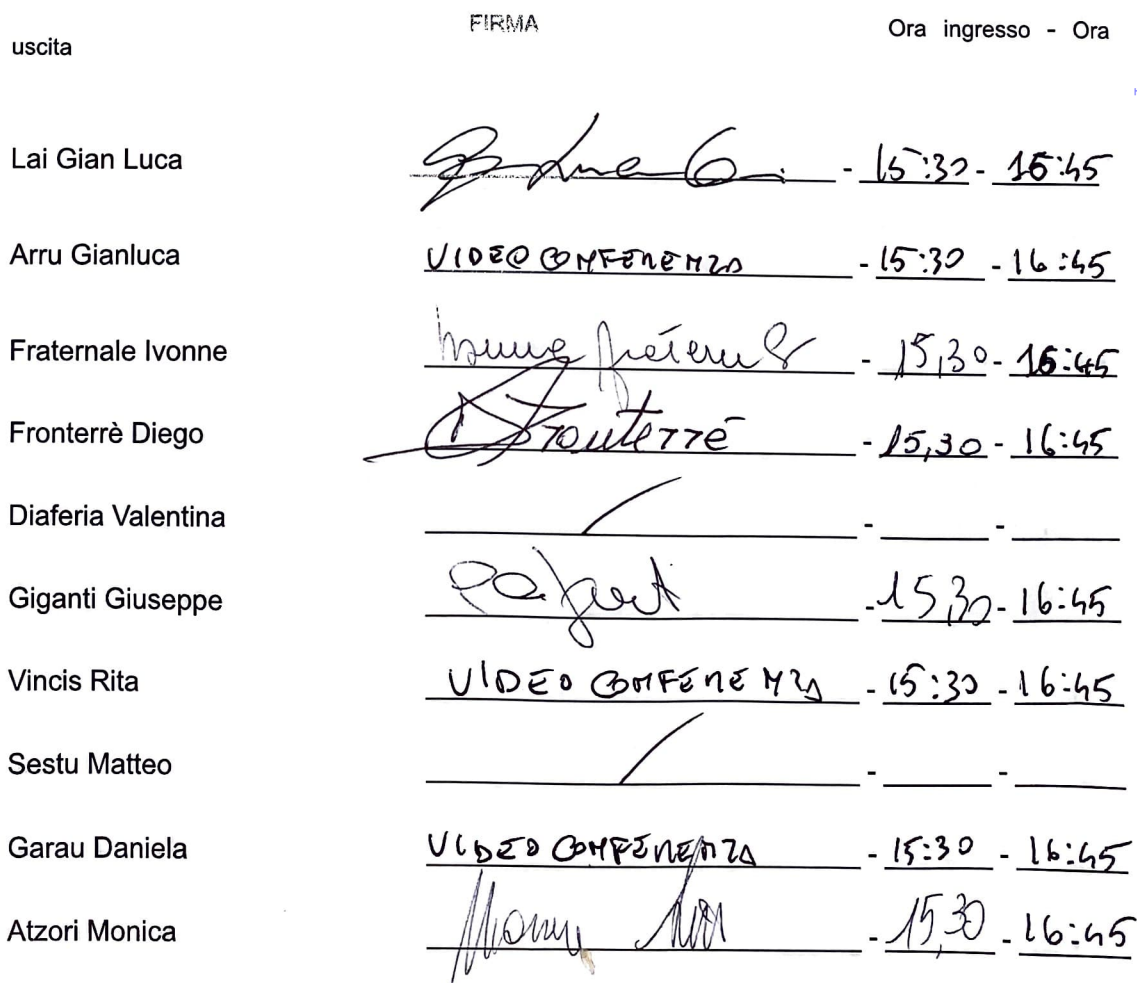 FIRMA Ora ingresso - Ora
uscita
Lai Gian Luca - 15:30 - 16:45
Arru Gianluca VIDEOCONFERENZA - 15:30 - 16:45
Fraternale Ivonne - 15,30 - 16:45
Fronterrè Diego Fronterré - 15,30 - 16:45
Diaferia Valentina - -
Giganti Giuseppe - 15,30 - 16:45
Vincis Rita VIDEO CONFERENZA - 15:30 - 16:45
Sestu Matteo - -
Garau Daniela VIDEO CONFERENZA - 15:30 - 16:45
Atzori Monica - 15,30 - 16:45